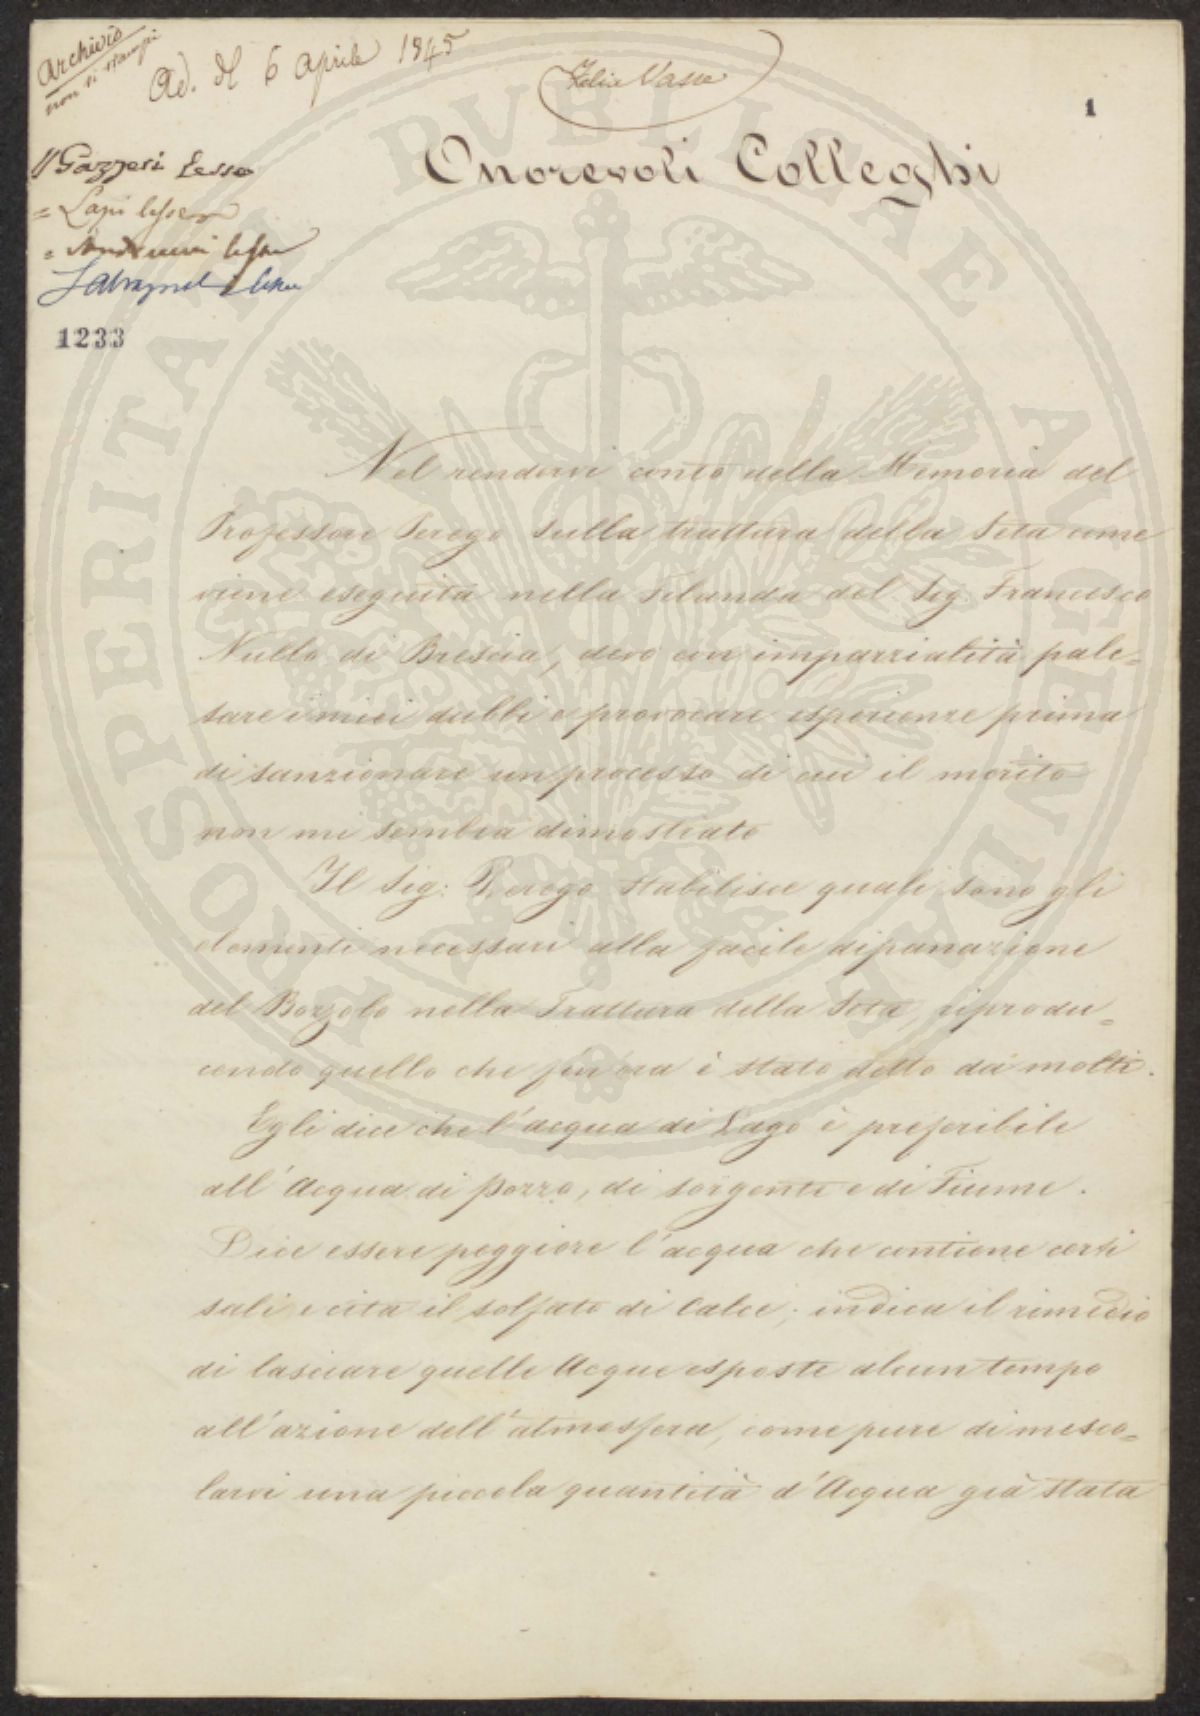 Archivio
non si stampi
Ad. del 6 Aprile 1845
Felice Vasse
1
Onorevoli Colleghi
Gazzeri Lesse
= Lapi lesse
= Andreucci lesse
Salvagnoli lesse
1233
Nel rendervi conto della Memoria del
Professore Perego sulla trattura della Seta come
viene eseguita nella Filanda del Sig. Francesco
Nullo di Brescia, devo con imparzialità pale=
sare i miei dubbi e provocare esperienze prima
di sanzionare un processo di cui il merito
non mi sembra dimostrato
Il Sig: Perego stabilisce quali sono gli
elementi necessari alla facile dipanazione
del Bozzolo nella Trattura della Seta, riprodu=
cendo quello che fin'ora è stato detto da molti.
Egli dice che l'acqua di Lago è preferibile
all'Acqua di pozzo, di sorgente e di Fiume.
Dice essere peggiore l'acqua che contiene certi
sali e cita il solfato di Calce; indica il rimedio
di lasciare quelle Acque esposte alcun tempo
all'azione dell'atmosfera, come pure di mesco=
larvi una piccola quantità d'Acqua già stata
PROSPERITATI PUBLICAE AUGENDAE